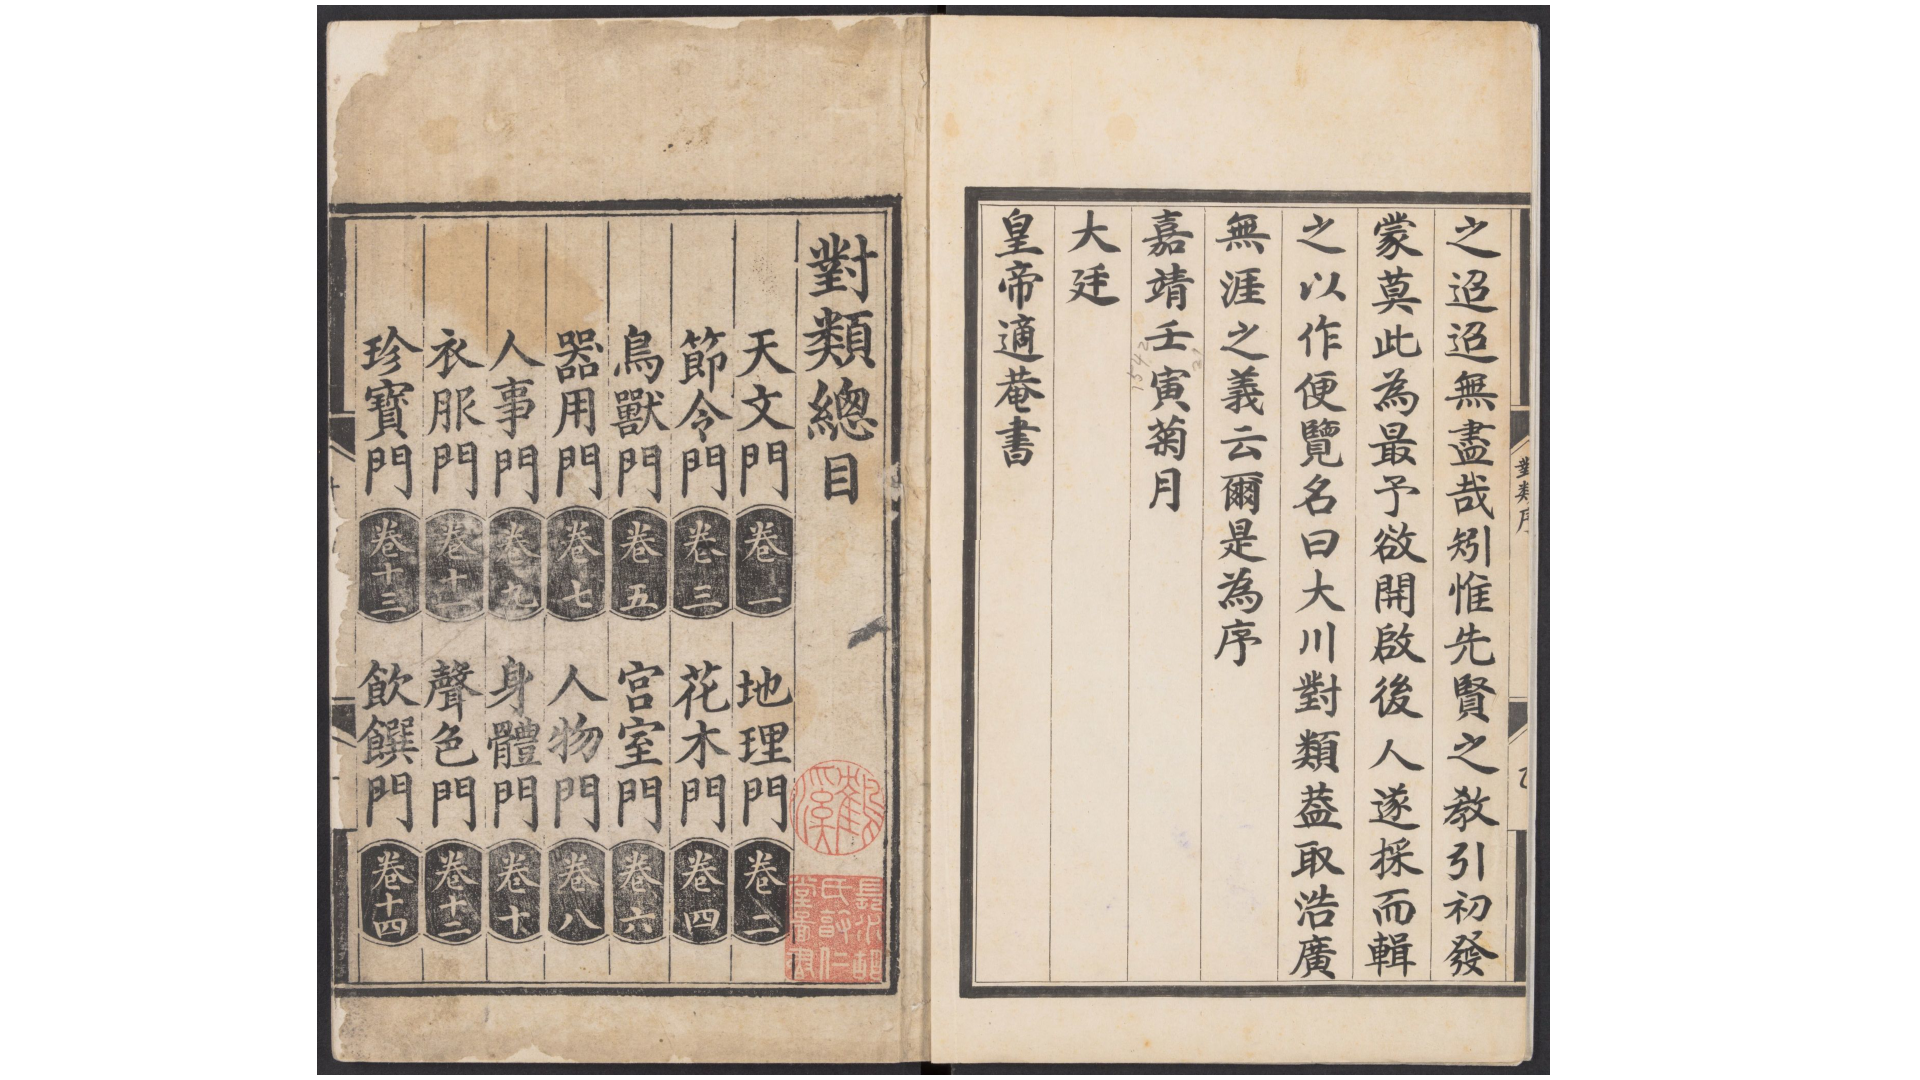 之迢迢無盡哉矧惟先賢之教引初發
蒙莫此為最予欲開啟後人遂採而輯
之以作便覽名曰大川對類葢取浩廣
無涯之義云爾是為序
嘉靖壬寅菊月
1542
大廷
皇帝適菴書
對類序
對類總目
天文門 卷一 地理門 卷二
節令門 卷三 花木門 卷四
鳥獸門 卷五 宮室門 卷六
器用門 卷七 人物門 卷八
人事門 卷九 身體門 卷十
衣服門 卷十一 聲色門 卷十二
珍寶門 卷十三 飲饌門 卷十四